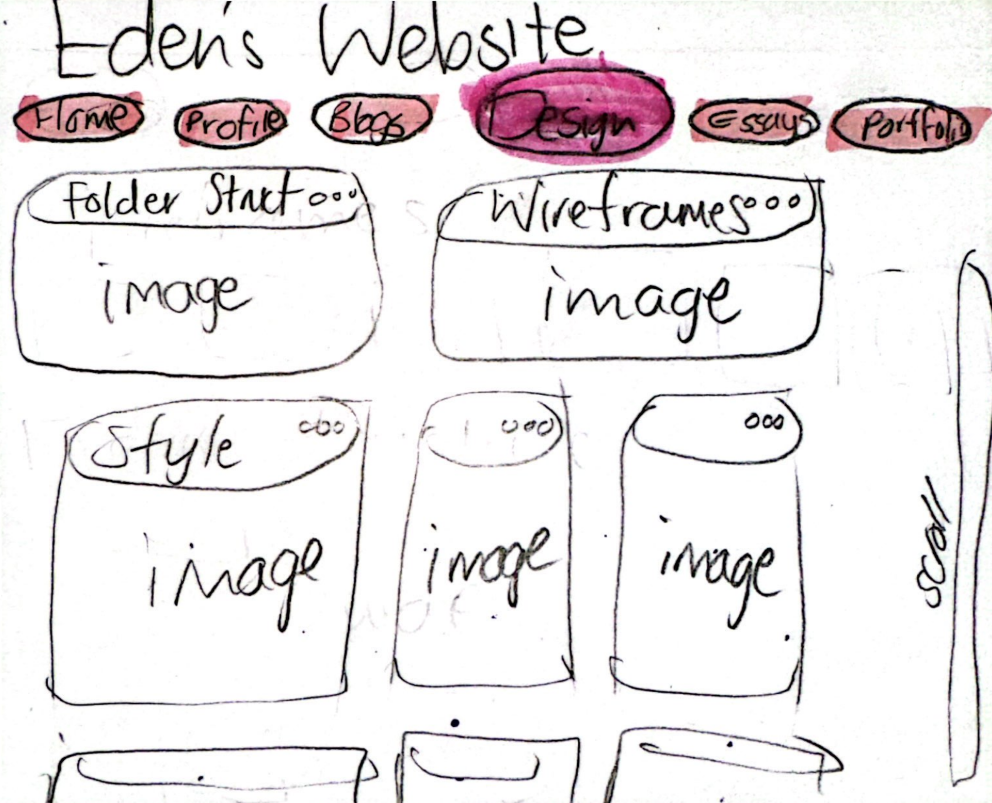 Eden's Website
Home Profile Blogs Design Essays Portfolio
Folder Struct
Wireframes
image
image
Style
image
image
image
scroll